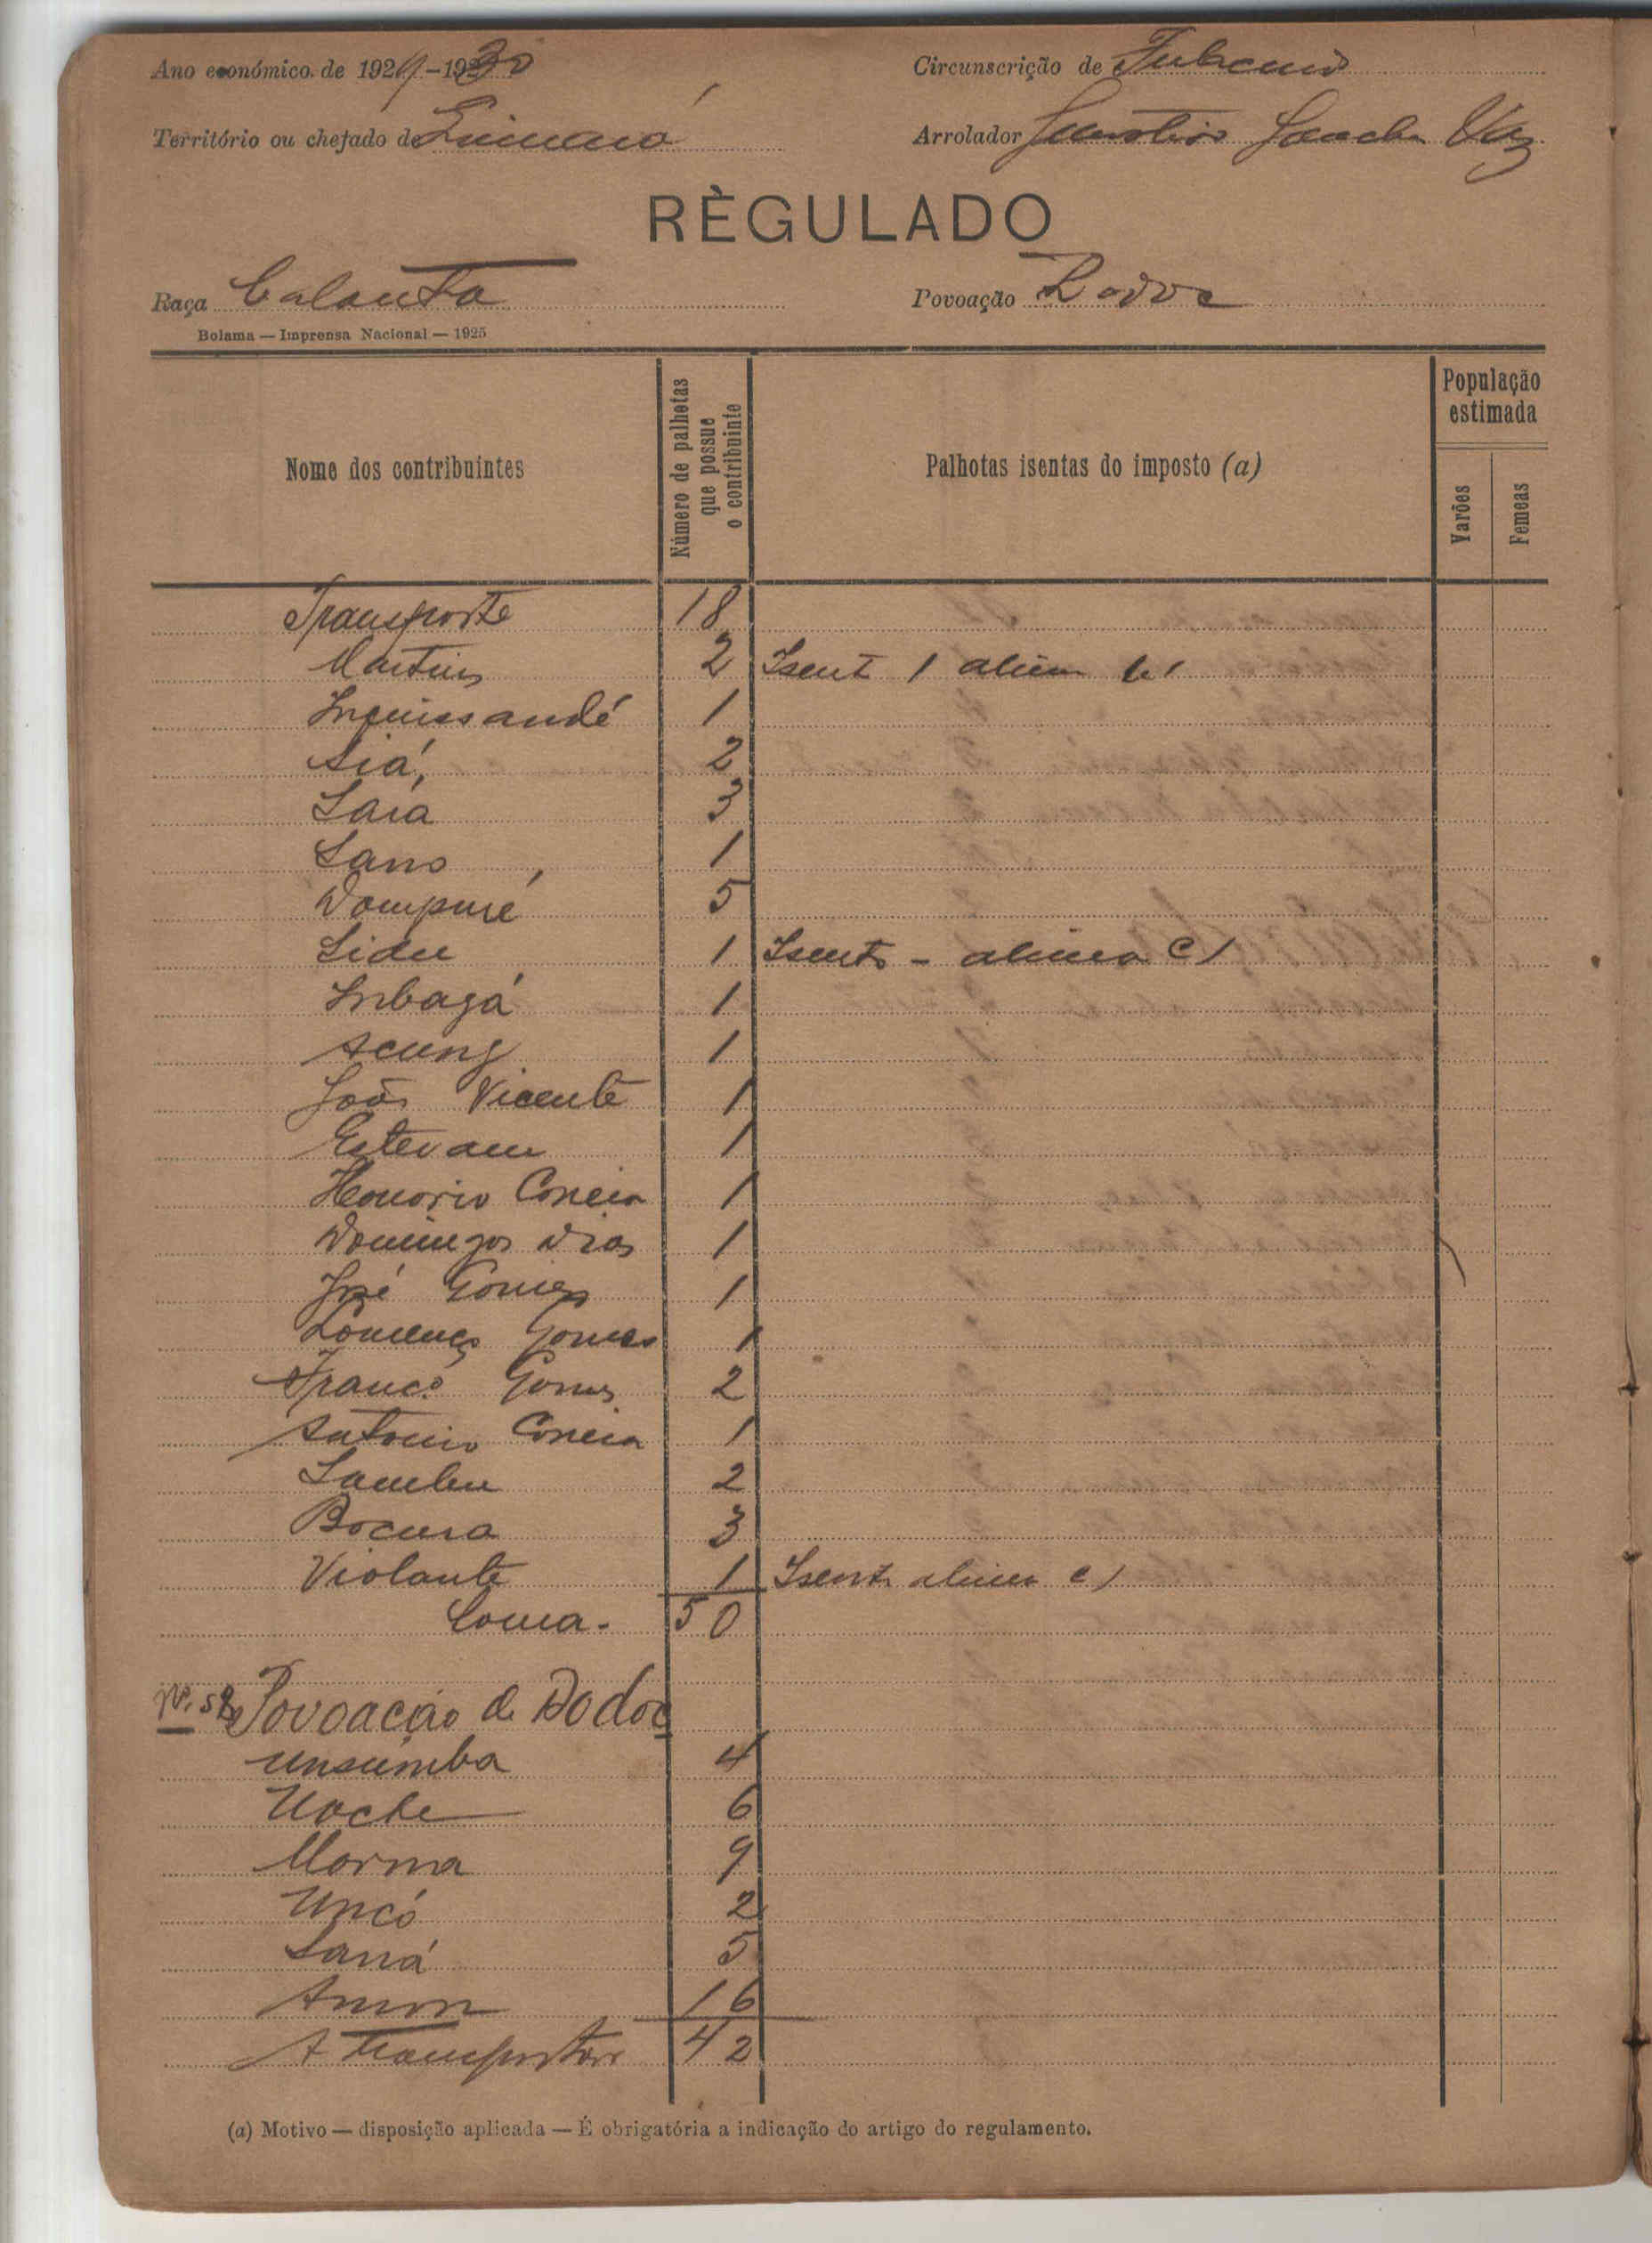 Ano económico de 1929-1930
Circunscrição de
Território ou chefado de
Arrolador Vaz
RÈGULADO
Raça Balanta
Povoação Dodoc
Bolama — Imprensa Nacional — 1925
Nome dos contribuintes
Número de palhotas que possue o contribuinte
Palhotas isentas do imposto (a)
População estimada
Varões
Femeas
Transporte 18
Martins 2 Isent 1 alinea b)
Inquissandé 1
Siá 2
Saiá 3
Sano 1
Dompuré 5
Sidu 1 Isento - alinea c)
Inbagá 1
1
João Vicente 1
Estevam 1
Honorio Correia 1
Domingos Dias 1
José Gomes 1
Lourenço Gomes 1
Franc.º Gomes 2
Antonio Correia 1
Sambu 2
Bocura 3
Violante 1 Isent. alinea c)
Soma - 50
Nº. 52 Povoação de Dodoc
Unsumba 4
Uoche 6
Morna 9
Uncó 2
Saná 5
16
A transportar 42
(a) Motivo — disposição aplicada — É obrigatória a indicação do artigo do regulamento.